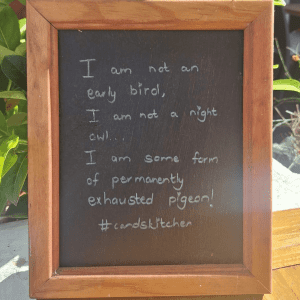 I am not an
early bird,
I am not a night
owl...
I am some form
of permanently
exhausted pigeon!
#candskitchen